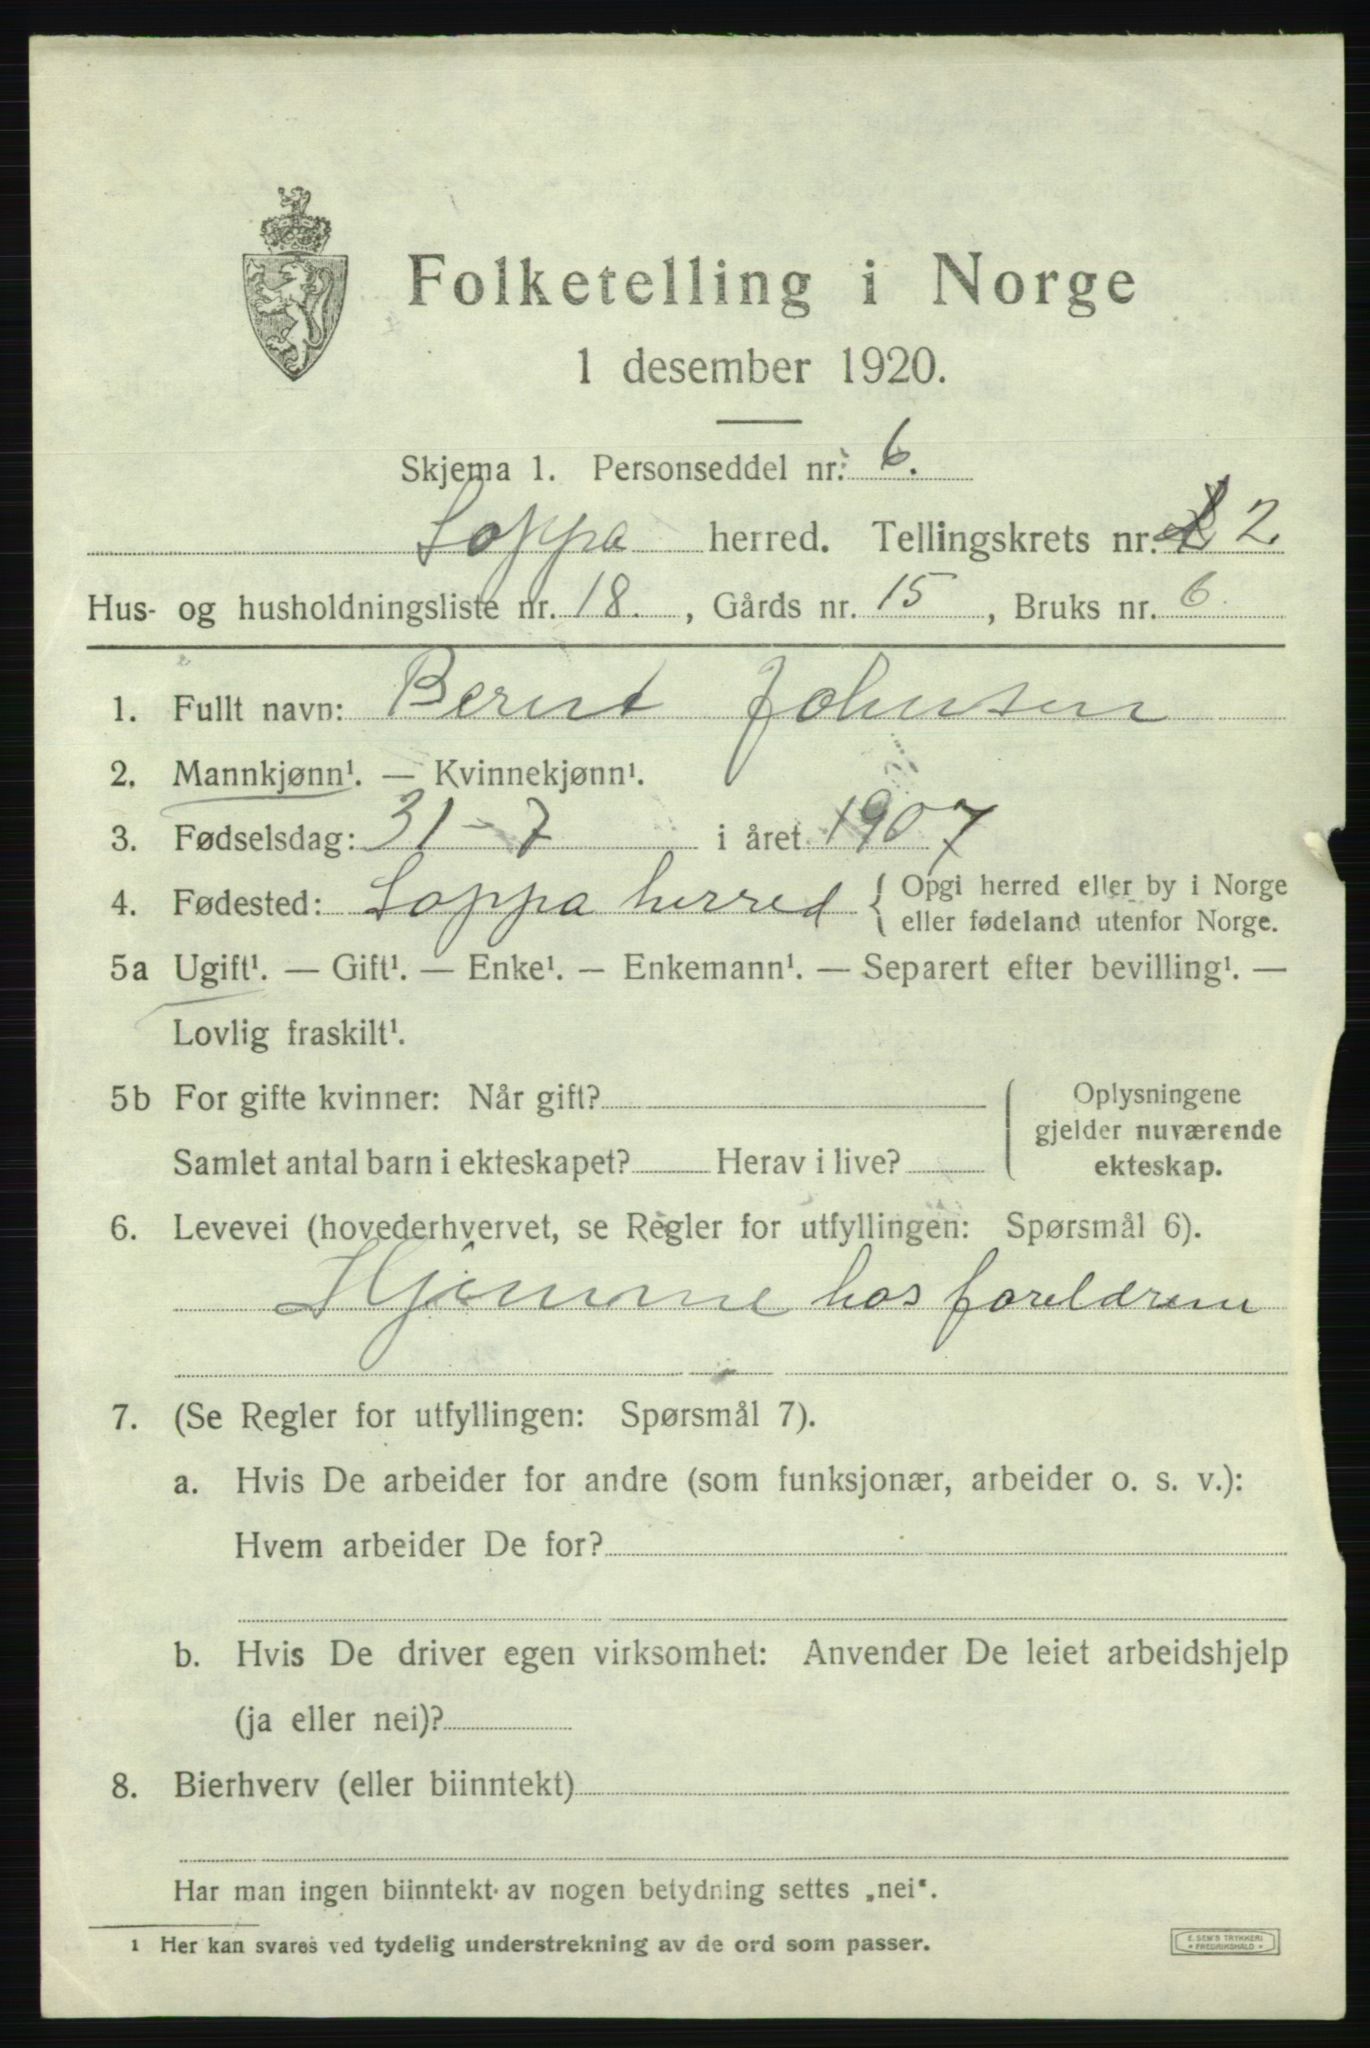 Folketelling i Norge
1 desember 1920.
Skjema 1. Personseddel nr. 6.
Loppa herred. Tellingskrets nr. 2.
Hus- og husholdningsliste nr. 18. , Gårds nr. 15 , Bruks nr. 6.
1. Fullt navn: Bernt Johnsen
2. Mannkjønn¹. — Kvinnekjønn¹.
3. Fødselsdag: 31-7 i året 1907
4. Fødested: Loppa herred { Opgi herred eller by i Norge
eller fødeland utenfor Norge.
5a Ugift¹. — Gift¹. — Enke¹. — Enkemann¹. — Separert efter bevilling¹. —
Lovlig fraskilt¹.
5b For gifte kvinner: Når gift?
Samlet antal barn i ekteskapet? Herav i live?
Oplysningene
gjelder nuværende
ekteskap.
6. Levevei (hovederhvervet, se Regler for utfyllingen: Spørsmål 6).
Hjemme hos foreldrene
7. (Se Regler for utfyllingen: Spørsmål 7).
a. Hvis De arbeider for andre (som funksjonær, arbeider o. s. v.):
Hvem arbeider De for?
b. Hvis De driver egen virksomhet: Anvender De leiet arbeidshjelp
(ja eller nei)?
8. Bierhverv (eller biinntekt)
Har man ingen biinntekt av nogen betydning settes „nei“.
1 Her kan svares ved tydelig understrekning av de ord som passer.
E. SEM'S TRYKKERI
* FREDRIKSHALD *